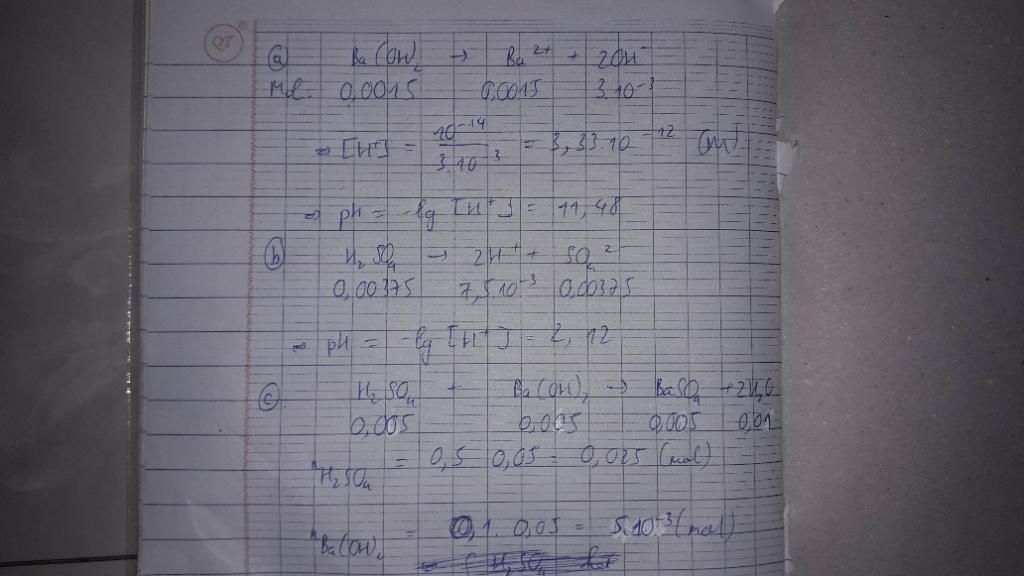 (a) Ba(OH)₂ → Ba²⁺ + 2OH⁻
Mol. 0,0015 0,0015 3.10⁻³
⇒ [H⁺] = 10⁻¹⁴ / 3.10⁻³ = 3,33.10⁻¹² (M)
⇒ pH = -lg [H⁺] = 11,48
(b) H₂SO₄ → 2H⁺ + SO₄²⁻
0,00375 7,5.10⁻³ 0,00375
⇒ pH = -lg [H⁺] = 2,12
(c) H₂SO₄ + Ba(OH)₂ → BaSO₄ + 2H₂O
0,005 0,005 0,005 0,01
nH₂SO₄ = 0,5 0,05 = 0,025 (mol)
nBa(OH)₂ = 0,1. 0,05 = 5.10⁻³ (mol)